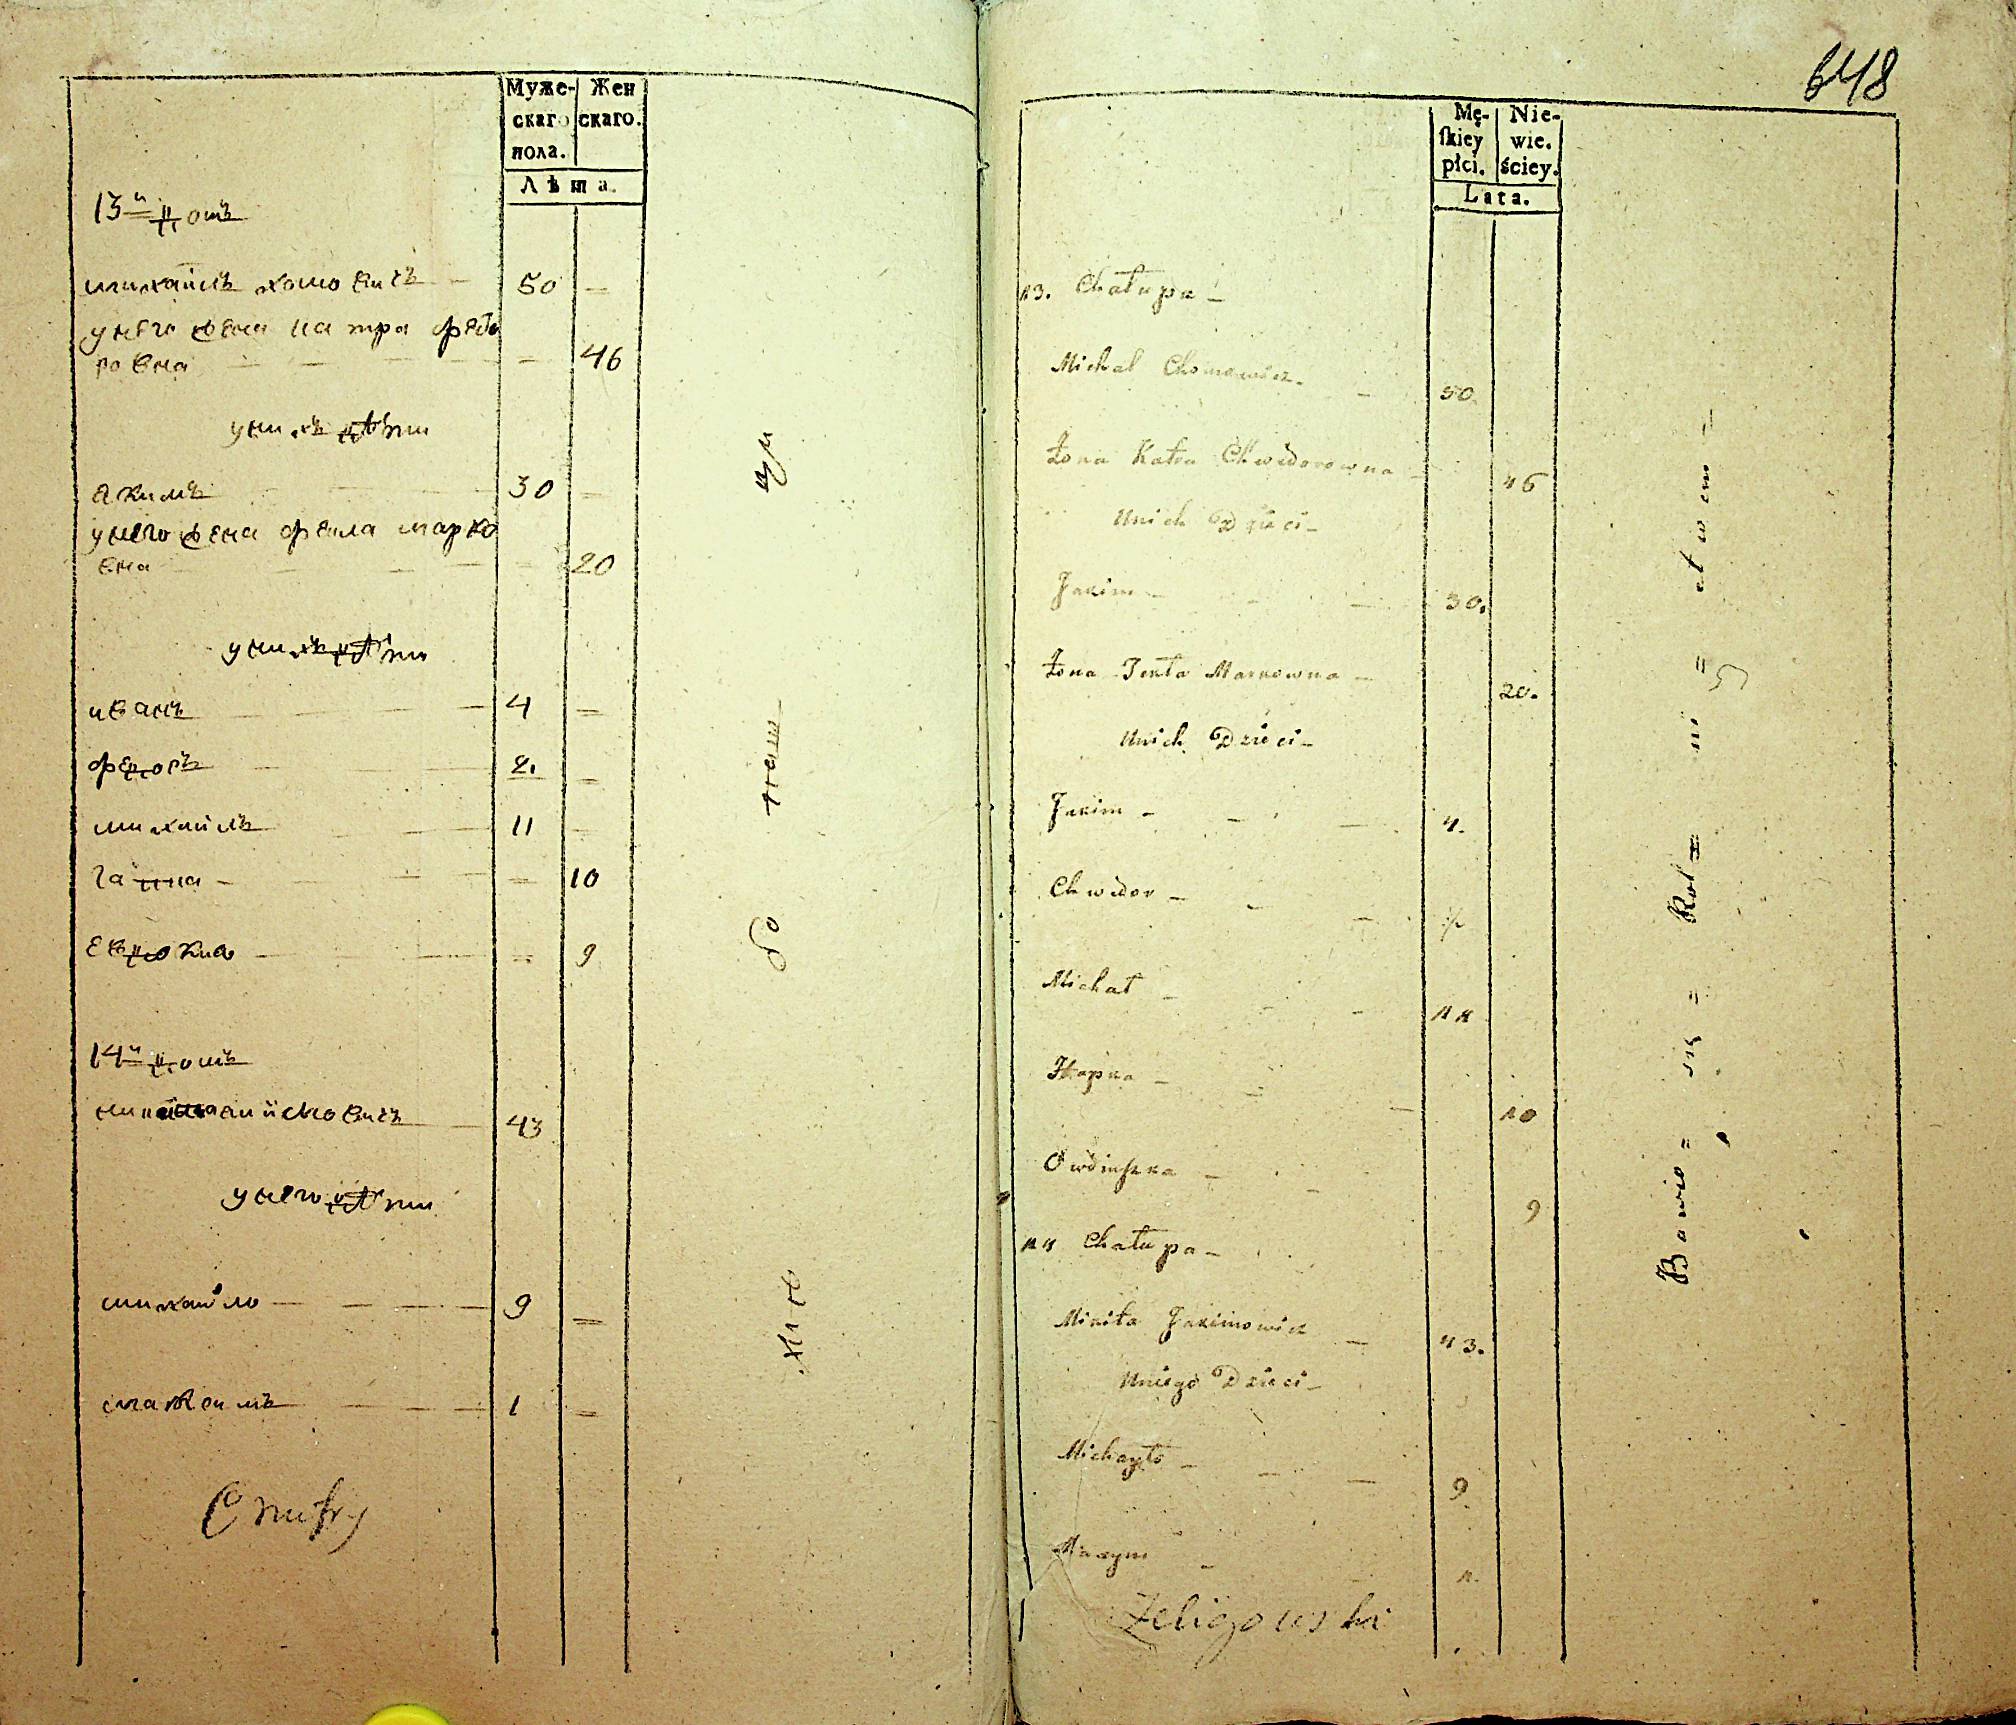 Муже-
скаго
пола.
Жен
скаго.
Лѣта.
13й домъ
михаилъ хомовичъ 50
унего жена катра федо
ровна 46
унихъ дѣти
акимъ 30
унего жена фекла марко
вна 20
унихъ дѣти
иванъ 4
федоръ 2.
михаилъ 11
10
Евдокиа 9
14й домъ
43
унего дѣти
михайло 9
максимъ 1
648
Mę-
ſkiey
płci.
Nie-
wie.
ściey.
Lata.
13. Chałupa
Michał Chomowicz. 50.
Żona Katra Chwidorowna 46
Unich Dzieci
Jakim 30.
Żona Tekla Markowna 20.
Unich Dzieci
Jakim 4.
Chwidor
Michał 11
Hapka 10
Owdiuszka 9
14 Chałupa
Mikita Jakimowicz 43.
Uniego Dzieci
Michayło 9.
Maxym 1.
Zeligowski